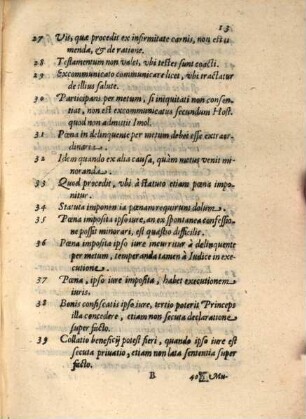 13
27 Vis, quæ procedit ex infirmitate carnis, non est ti
menda, & de ratione.
28 Testamentum non valet, vbi testes sunt coacti.
29 Excommunicato communicare licet, vbi tractatur
de illius salute.
30 Participans per metum, si iniquitati non consen-
tiat, non est excommunicatus secundum Host.
quod non admittit Imol.
31 Pœna in delinquente per metum debet esse extraor-
dinaria.
32 Idem quando ex alia causa, quàm metus venit mi-
noranda.
33 Quod procedit, vbi à statuto etiam pœna impo-
nitur.
34 Statuta imponentia pœnam requirunt dolum.
35 Pœna imposita ipso iure, an ex spontanea confessio-
ne possit minorari, est quæstio difficilis.
36 Pœna imposita ipso iure incurritur à delinquente
per metum, temperanda tamen à Iudice in exe-
cutione.
37 Pœna, ipso iure imposita, habet executionem
iuris.
38 Bonis confiscatis ipso iure, tertio poterit Princeps
illa concedere, etiam non secuta declaratione
super facto.
39 Collatio beneficij potest fieri, quando ipso iure est
secuta priuatio, etiam non lata sententia super
facto.
B 40 Mu-